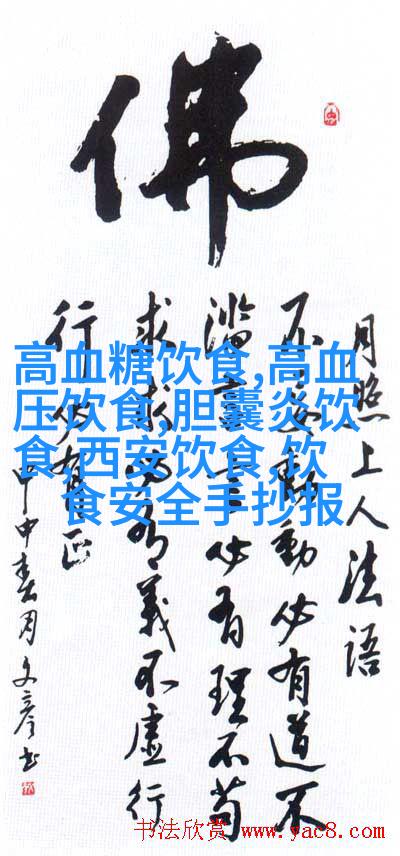 佛
月照上人法語
不動動必有道不
言必有理不苟
求求必有義不虛行
行必有正
甲申春月文彦书
高血糖饮食,高血
压饮食,胆囊炎饮
食,西安饮食,饮
食安全手抄报
书法欣赏 www.yac8.com